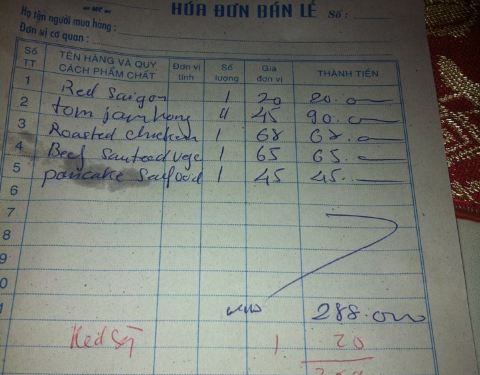 HÓA ĐƠN BÁN LẺ Số :
Họ tên người mua hàng :
Đơn vị cơ quan :
Số TT TÊN HÀNG VÀ QUY CÁCH PHẨM CHẤT Đơn vị tính Số lượng Giá đơn vị THÀNH TIỀN
1 Red Saigon 1 20 20.
2 45 90.
3 Roasted chicken 1 68 68.
4 Beef 1 65 65.
5 pancake Seafood 1 45 45.
6
7
8
9
0
1 288.000
Red Sg 1 20